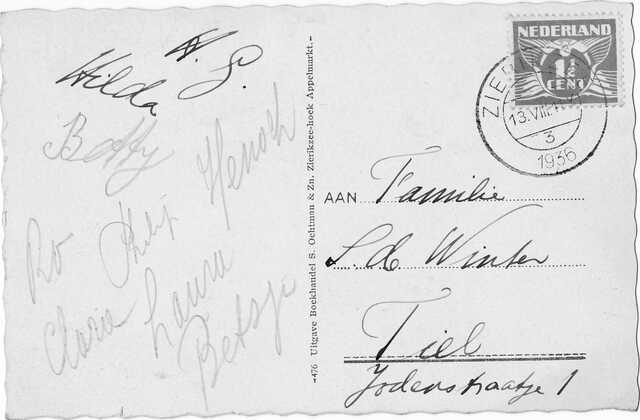 W. S.
Hilda
Betty
Henoch
Philip
Ro
Laura
Clara
Betsje
-476 Uitgave Boekhandel S. Ochtman & Zn. Zierikzee-hoek Appelmarkt.-
NEDERLAND
1½
CENT
13.VIII
3
1936
AAN Familie
S. de Winter
Tiel
Jodenstraatje 1